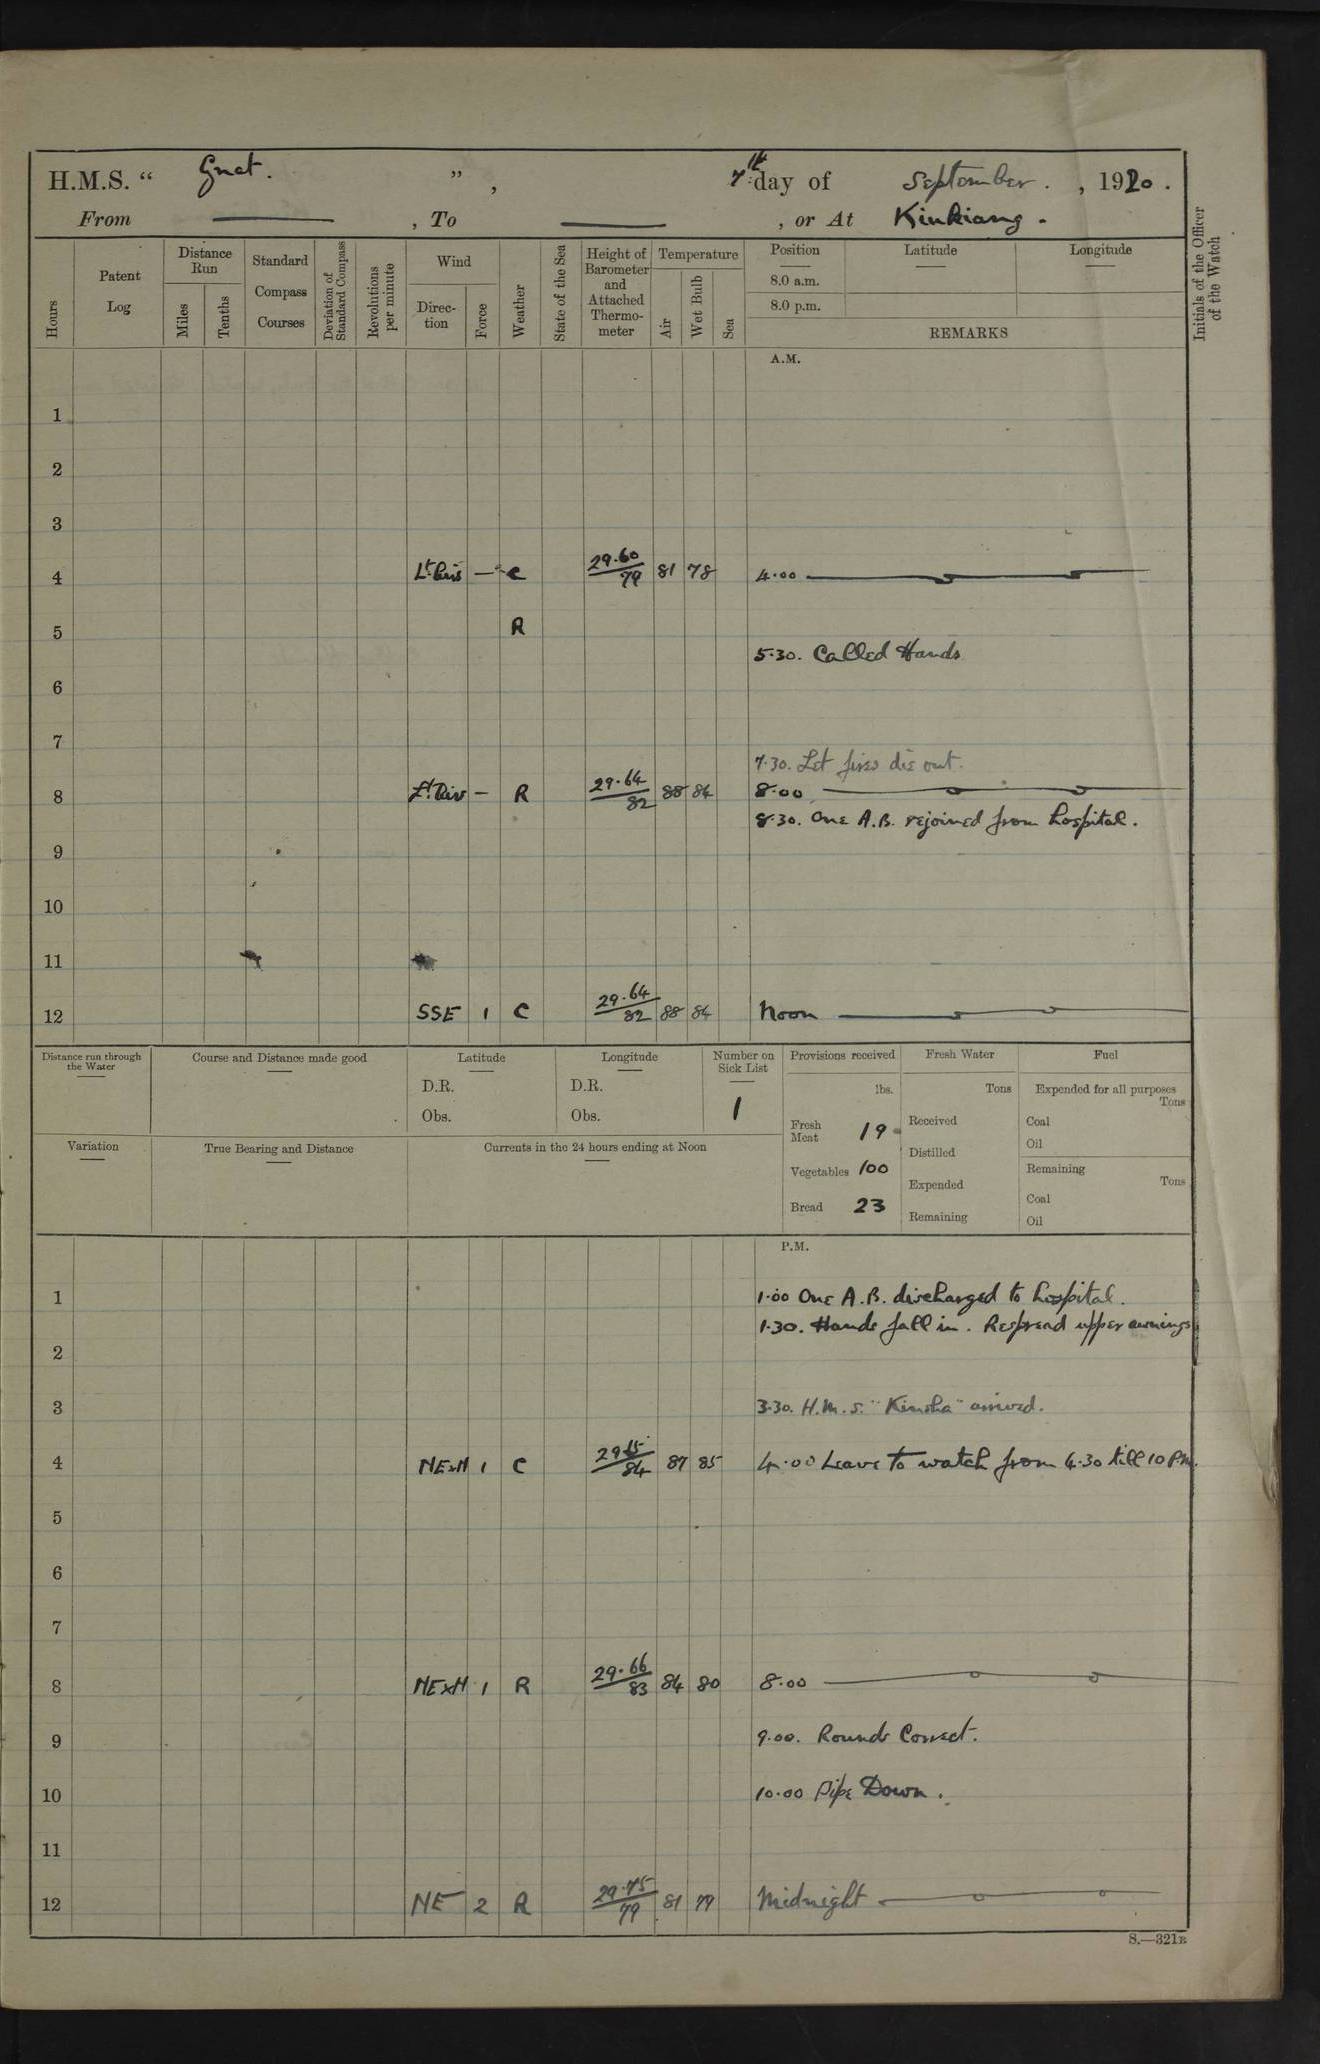 H.M.S. “ Gnat. ” , 7th day of September . , 1920 .
From ——— , To ——— , or At Kiukiang .
Hours
Patent Log
Distance Run
Miles
Tenths
Standard Compass Courses
Deviation of Standard Compass
Revolutions per minute
Wind
Direction
Force
Weather
State of the Sea
Height of Barometer and Attached Thermometer
Temperature
Air
Wet Bulb
Sea
Position
8.0 a.m.
8.0 p.m.
Latitude
Longitude
REMARKS
Initials of the Officer of the Watch
A.M.
1
2
3
4 Lt. — C 29.60/79 81 78 4.00 ———
5 R
5.30. Called Hands
6
7
7.30. Let fires die out.
8 Lt. — R 29.64/82 88 84 8.00 ———
8.30. One A.B. rejoined from hospital.
9
10
11
12 SSE 1 C 29.64/82 88 84 Noon ———
Distance run through the Water
Course and Distance made good
Latitude
D.R.
Obs.
Longitude
D.R.
Obs.
Number on Sick List
1
Provisions received
lbs.
Fresh Meat 19
Vegetables 100
Bread 23
Fresh Water
Tons
Received
Distilled
Expended
Remaining
Fuel
Expended for all purposes
Tons
Coal
Oil
Remaining
Tons
Coal
Oil
Variation
True Bearing and Distance
Currents in the 24 hours ending at Noon
P.M.
1 1.00 One A.B. discharged to hospital.
1.30. Hands fall in. Respread upper awnings
2
3 3.30. H.M.S. "Kinsha" arrived.
4 NExN 1 C 84 87 85 4.00 Leave to watch from 4.30 till 10 P.M.
5
6
7
8 NExN 1 R 29.66/83 84 80 8.00 ———
9 9.00. Rounds Correct.
10 10.00 Pipe Down.
11
12 NE 2 R 29.75/79 81 79 Midnight ———
S.—321B